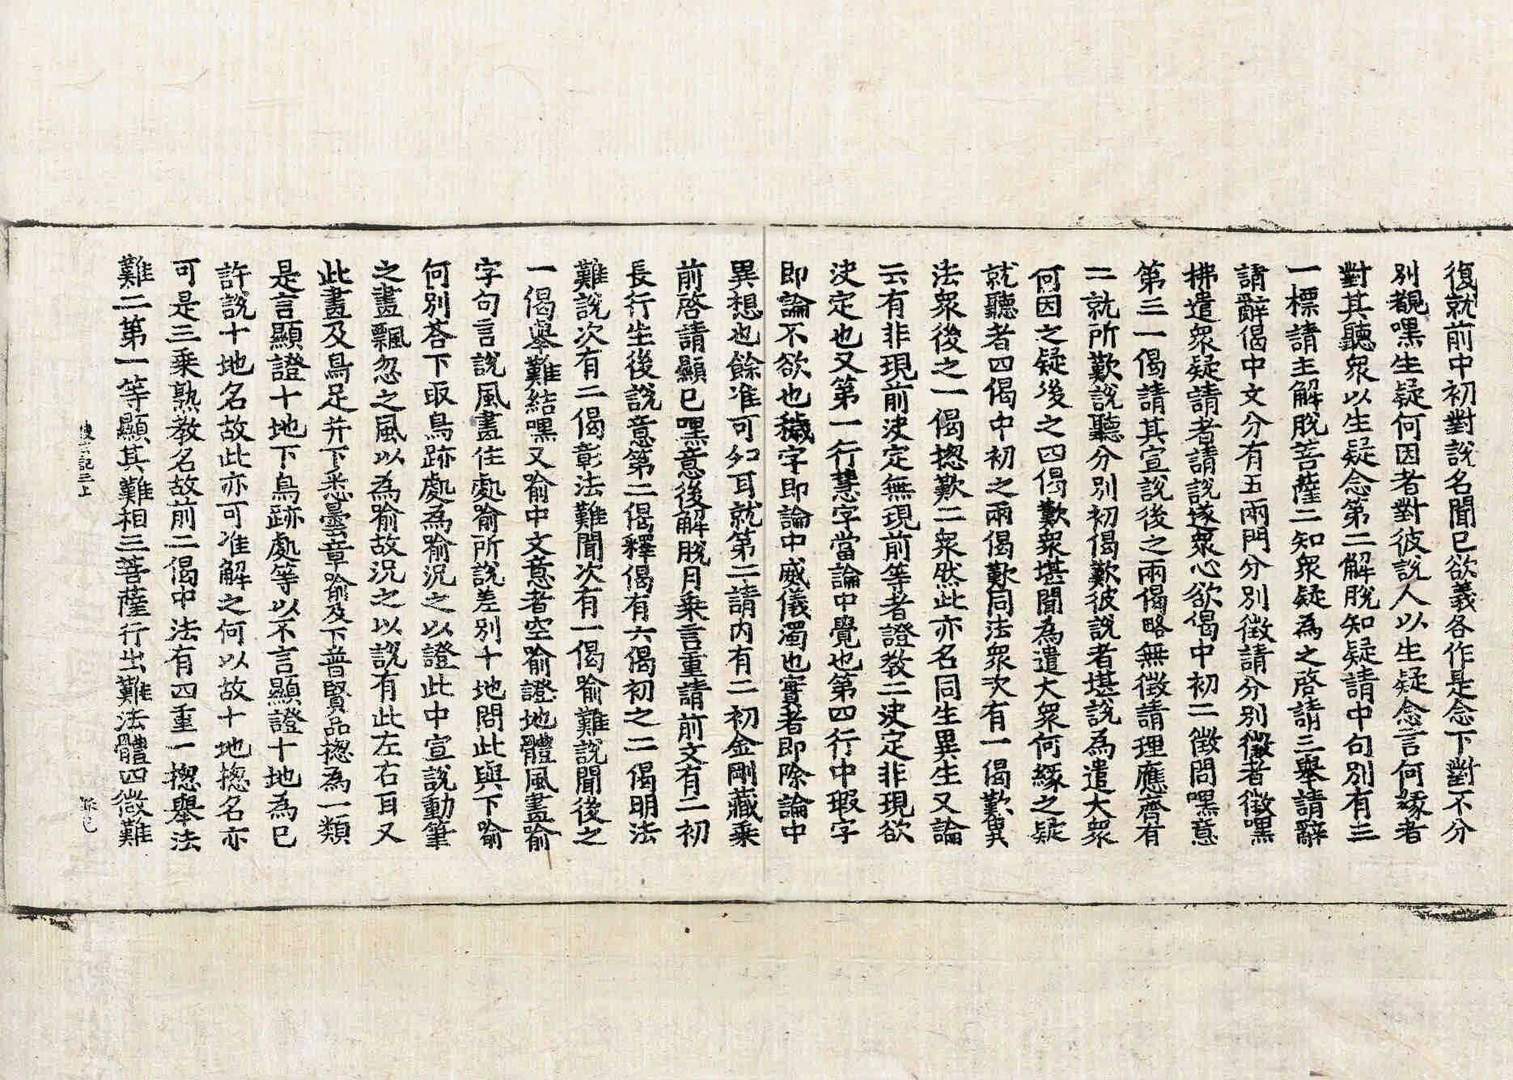 復就前中初對說名聞已欲義各作是念下對不分
別覩嘿生疑何因者對彼說人以生疑念言何緣者
對其聽衆以生疑念第二解脫知疑請中句別有三
一標請主解脫菩薩二知衆疑為之啓請三舉請辭
請辭偈中文分有五兩門分別徵請分別徵者徵嘿
拂遣衆疑請者請說遂衆心欲偈中初二徵問嘿意
第三一偈請其宣說後之兩偈略無徵請理應齊有
二就所歎說聽分別初偈歎彼說者堪說為遣大衆
何因之疑後之四偈歎衆堪聞為遣大衆何緣之疑
就聽者四偈中初之兩偈歎同法衆次有一偈歎異
法衆後之一偈揔歎二衆然此亦名同生異生又論
云有非現前決定無現前等者證教二決定非現欲
決定也又第一行慧字當論中覺也第四行中瑕字
即論不欲也穢字即論中威儀濁也實者即除論中
異想也餘准可知耳就第二請内有二初金剛藏乘
前啓請顯已嘿意後解脫月乘言重請前文有二初
長行生後說意第二偈釋偈有六偈初之二偈明法
難說次有二偈彰法難聞次有一偈喻難說聞後之
一偈舉難結嘿又喻中文意者空喻證地體風畫喻
字句言說風畫住處喻所說差別十地問此與下喻
何別荅下取鳥跡處為喻況之以證此中宣說動筆
之畫飄忽之風以為喻故況之以說有此左右耳又
此畫及鳥足并下悉曇章喻及下普賢品揔為一類
是言顯證十地下鳥跡處等以不言顯證十地為已
許說十地名故此亦可准解之何以故十地揔名亦
可是三乘熟教名故前二偈中法有四重一揔舉法
難二第一等顯其難相三菩薩行出難法體四徵難